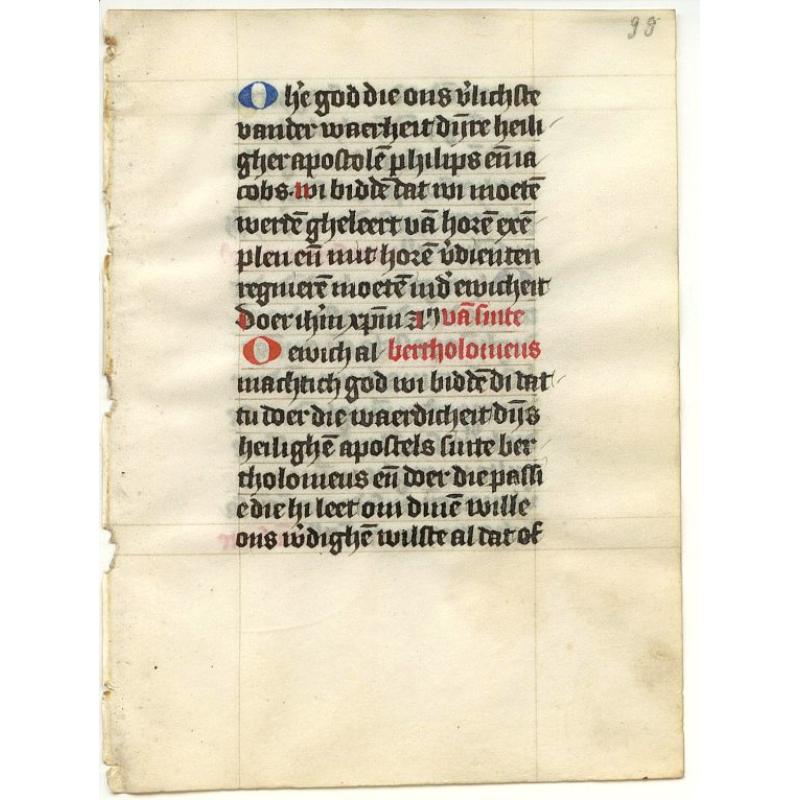 99
O h'e god die ons v'lichste
vander waerheit dijre heili
gher apostolē philips eñ ia
cobs. wi biddē dat wi moetē
werdē gheleert vā horē exē
plen eñ mit horē v'dienten
regnierē moetē ind' ewicheit
Doer ih'm xp̄m vā sinte
O ewich al bertholomeus
machtich god wi biddē di dat
tu doer die waerdicheit dijs
heilighē apostels sinte ber
tholomeus eñ doer die passi
e die hi leet om dinē wille
ons w'dighē wilste al dat of